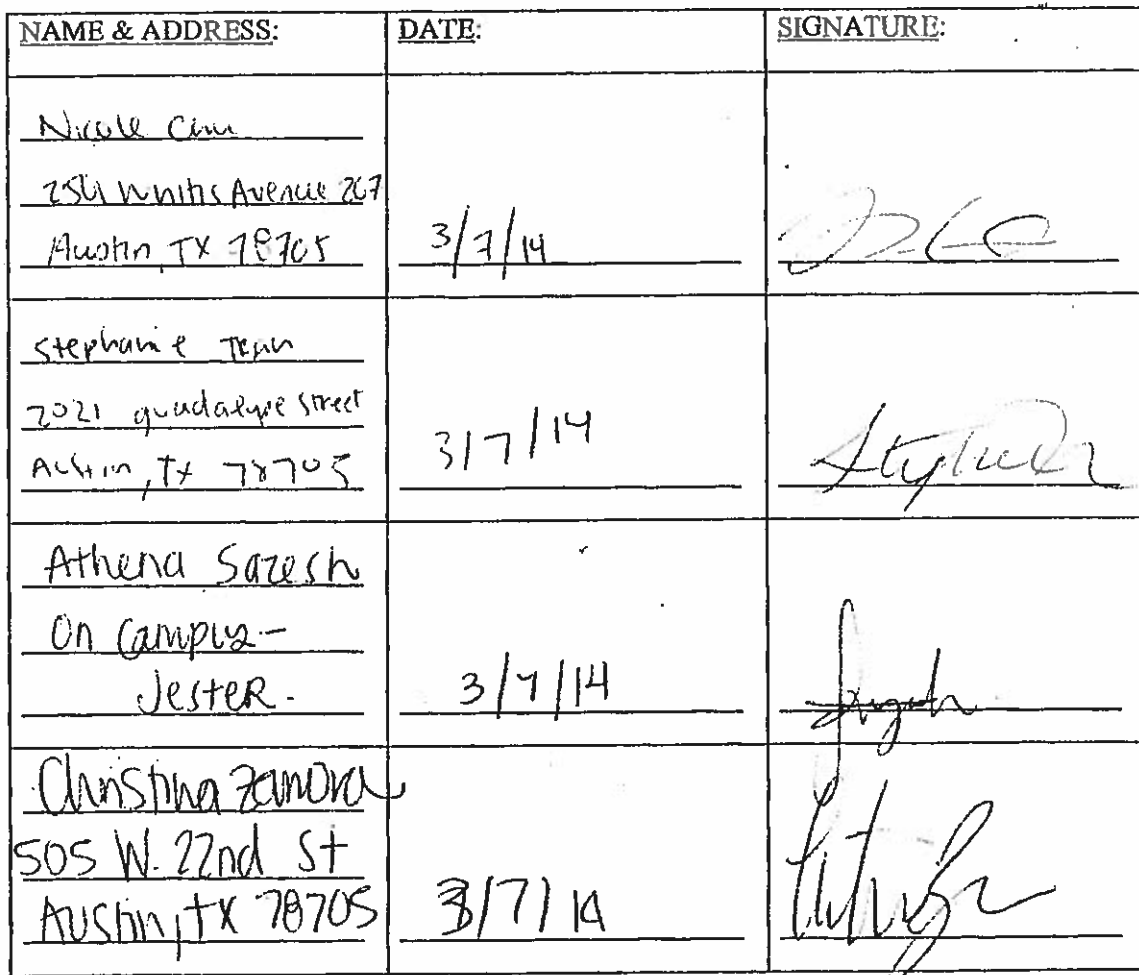 NAME & ADDRESS: DATE: SIGNATURE:
Nicole
Whitis Avenue 267
Austin, TX 78705 3/7/14
Stephanie Tran
2021 guadalupe street
Austin, TX 78705 3/7/14
Athena Sazesh
On Campus -
Jester. 3/7/14
Christina Zamora
505 W. 22nd St
Austin, TX 78705 3/7/14